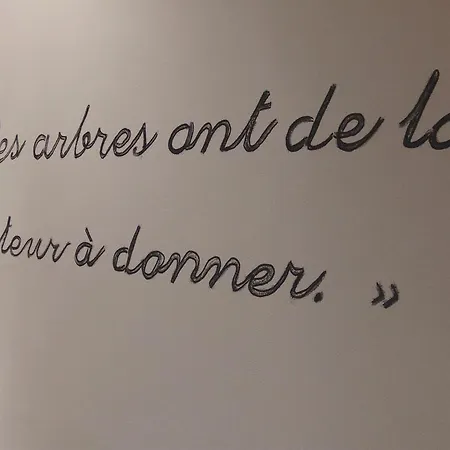 les arbres ont de la
teur à donner. »